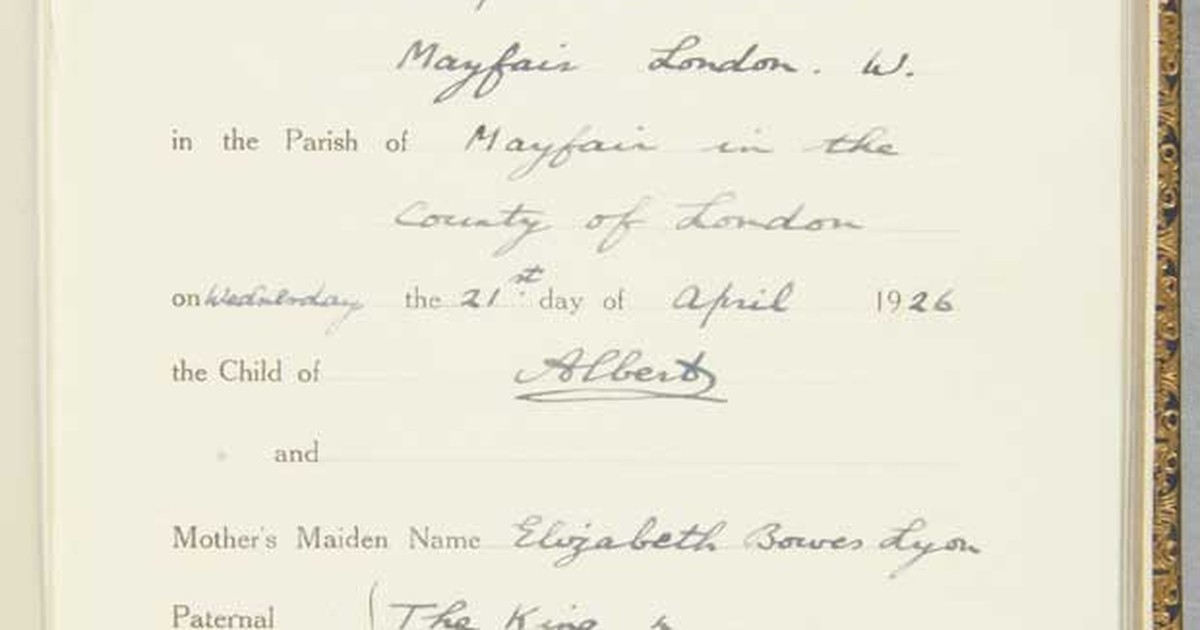 Mayfair London. W.
in the Parish of Mayfair in the
County of London
on Wednesday the 21st day of April 1926
the Child of Albert
and
Mother's Maiden Name Elizabeth Bowes Lyon
Paternal The King